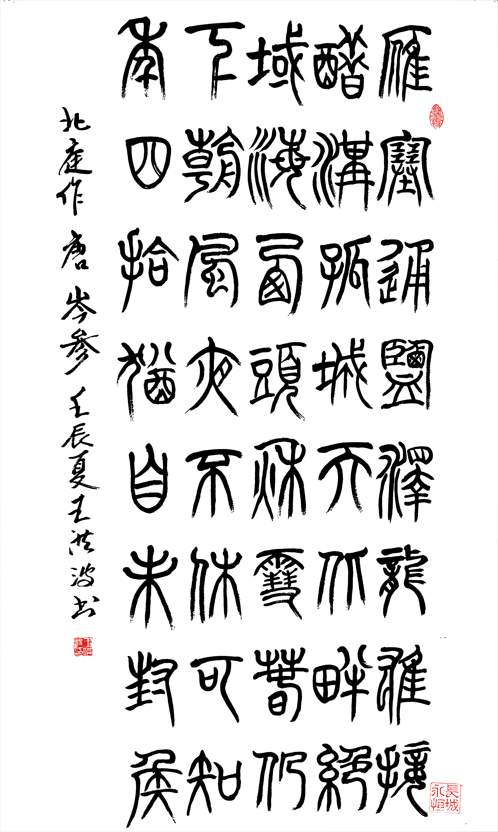 雁塞通鹽澤龍堆接
醋溝孤城天北畔絕
域海西頭秋雪春仍
下朝風夜不休可知
年四拾猶自未封侯
北庭作 唐 岑參 壬辰夏王洪波书
長城
永恒